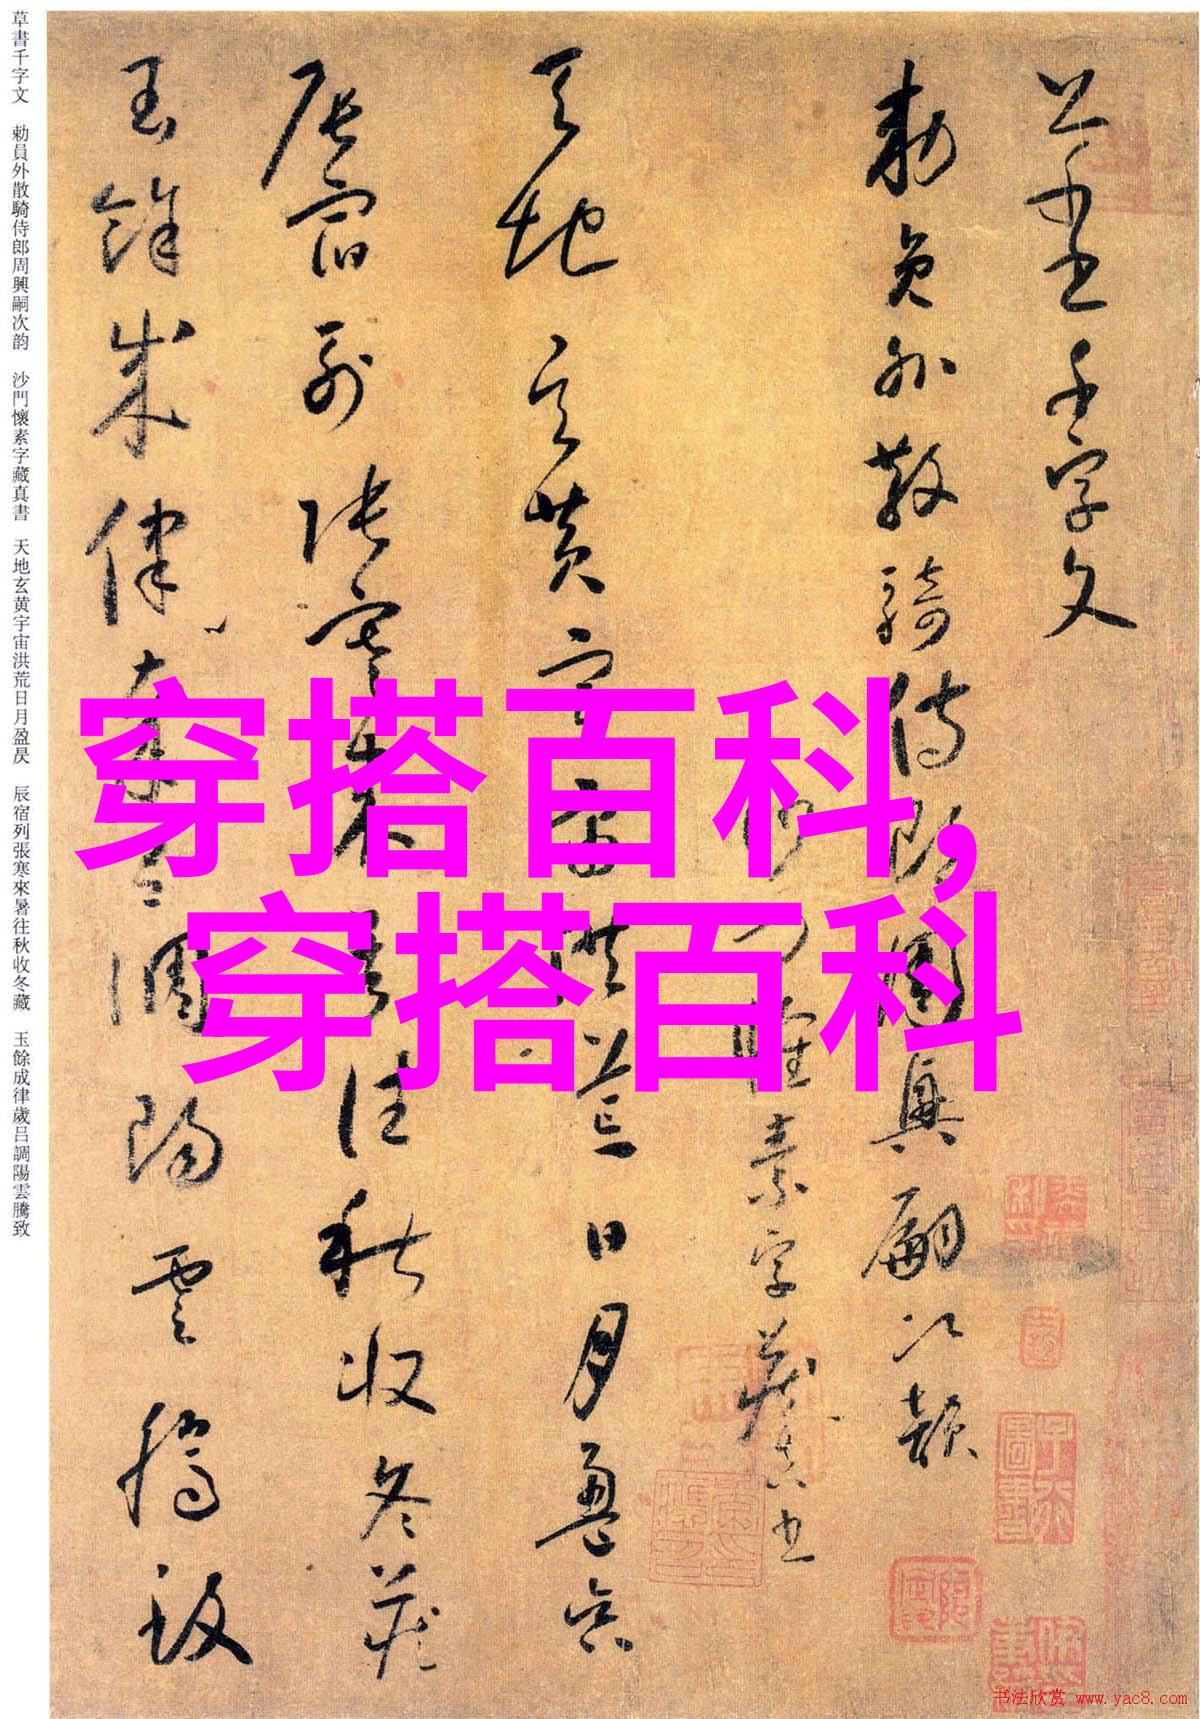 草書千字文
敕員外散騎侍郎周興嗣次韵
沙門懷素字藏真書
天地玄黃宇宙洪荒日月盈昃
辰宿列張寒來暑往秋收冬藏
玉餘成律歲呂調陽雲騰致
草書千字文 勅員外散騎侍郎周興嗣次韵 沙門懷素字藏真書 天地玄黄宇宙洪荒日月盈昃 辰宿列張寒來暑往秋收冬藏 玉餘成律歲吕調陽雲騰致
穿搭百科,
穿搭百科
书法欣赏 www.yac8.com